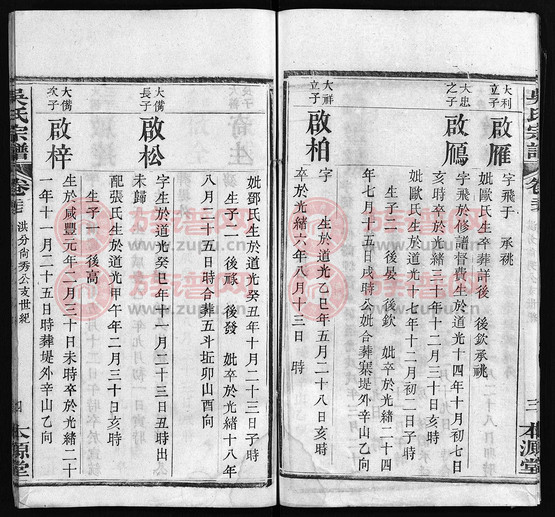 吳氏宗譜
三
本源堂
大利立子
啟雁
字飛于 承祧
妣歐氏生卒葬詳後 後欽承祧
大忠之子
啟鴈
字飛於修譜督費生於道光十四年十月初七日
亥時卒於光緒三十年十二月初三日亥時
妣歐氏生於道光十七年十二月初二日子時
生子二 後晏 後欽 妣卒於光緒二十四
年七月十五日戌時公妣合葬寨堤外辛山乙向
大祥立子
啟柏
字 生於道光乙巳年五月二十八日亥時
卒於光緒六年八月十三日 時
妣鄧氏生於道光癸丑年十月二十三日子時
生子二 後祿 後發 妣卒於光緒十八年
八月二十五日時合葬五斗坵卯山酉向
大備長子
啟松
字生於道光癸巳年十一月二十三日丑時出
未歸
配張氏生於道光甲午年二月三十日亥時
生子一 後高
大備次子
啟梓
生於咸豐元年二月三十日未時卒於光緒二十
一年十一月二十五日時葬堤外辛山乙向
吳氏宗譜
卷
洪分尚秀公支世紀
本源堂